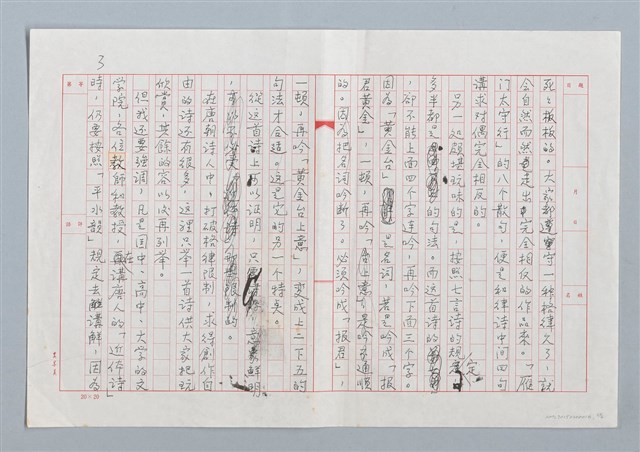 3
死々板板的。大家都遵守一種格律久了,就
會自然而然走出完全相反的作品來。「雁
門太守行」的八个散句,便是和律詩中間四句
講求对偶完全相反的。
另一処頗堪玩味的是,按照七言詩的規定
多半都是的句法。而这首詩的
,卻不能上面四个字連吟,再吟下面三个字。
因為「黃金台」是名詞,若是吟成「报
君黃金」,一頓,再吟「台上意」是吟不通順
的。因為把名詞吟断了。必須吟成「报君」,
一頓,再吟「黃金台上意」,变成上二下五的
句法才合适。这是它的另一个特点。
從这首詩上可以证明,只要意象鮮明
限制的。
在唐朝詩人中,打破格律限制,求得創作自
由的詩还有很多,这裡只举一首詩供大家把玩
欣賞,其餘的容以後再列举。
但我还要強調,凡是国中、高中、大学的文
学院,各位教師和教授,在講唐人的「近体詩」
時,仍要按照「平水韻」規定去講解,因為
20×20